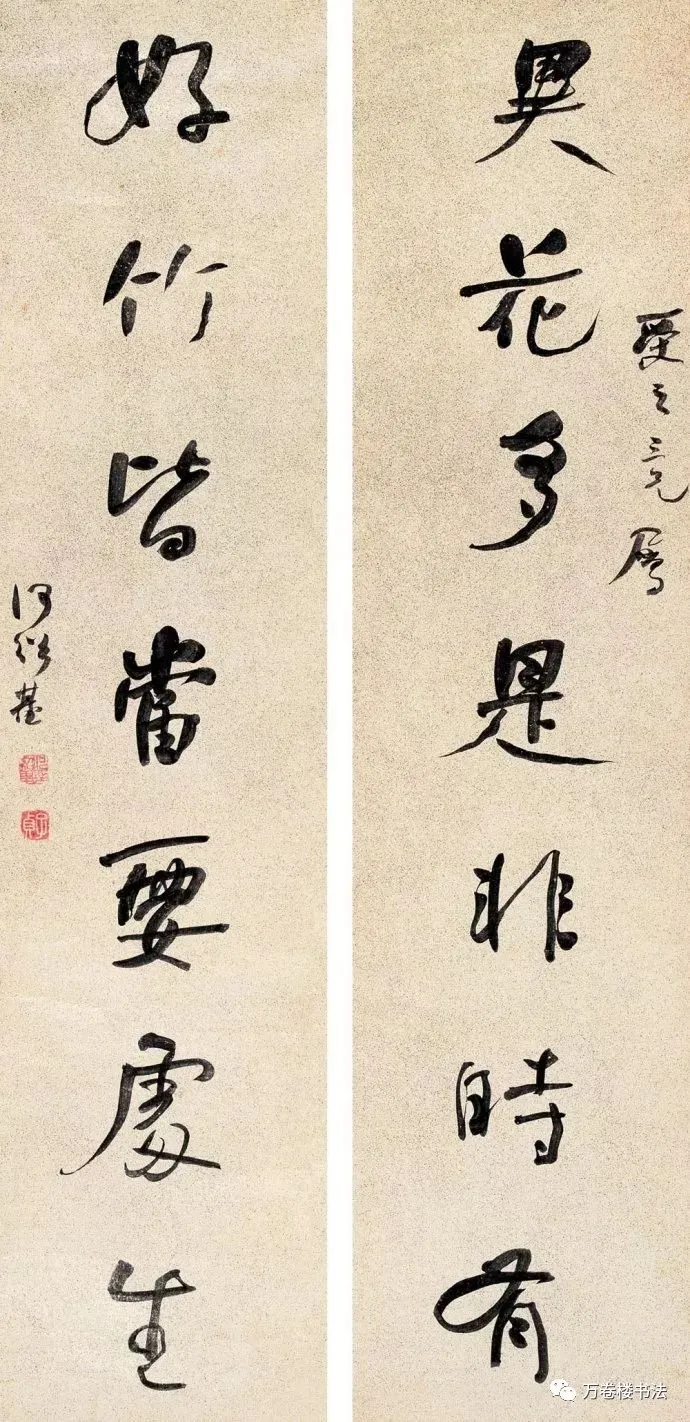 異花多是非時有
受之三兄屬
好竹皆當要處生
何紹基
子貞
万卷楼书法